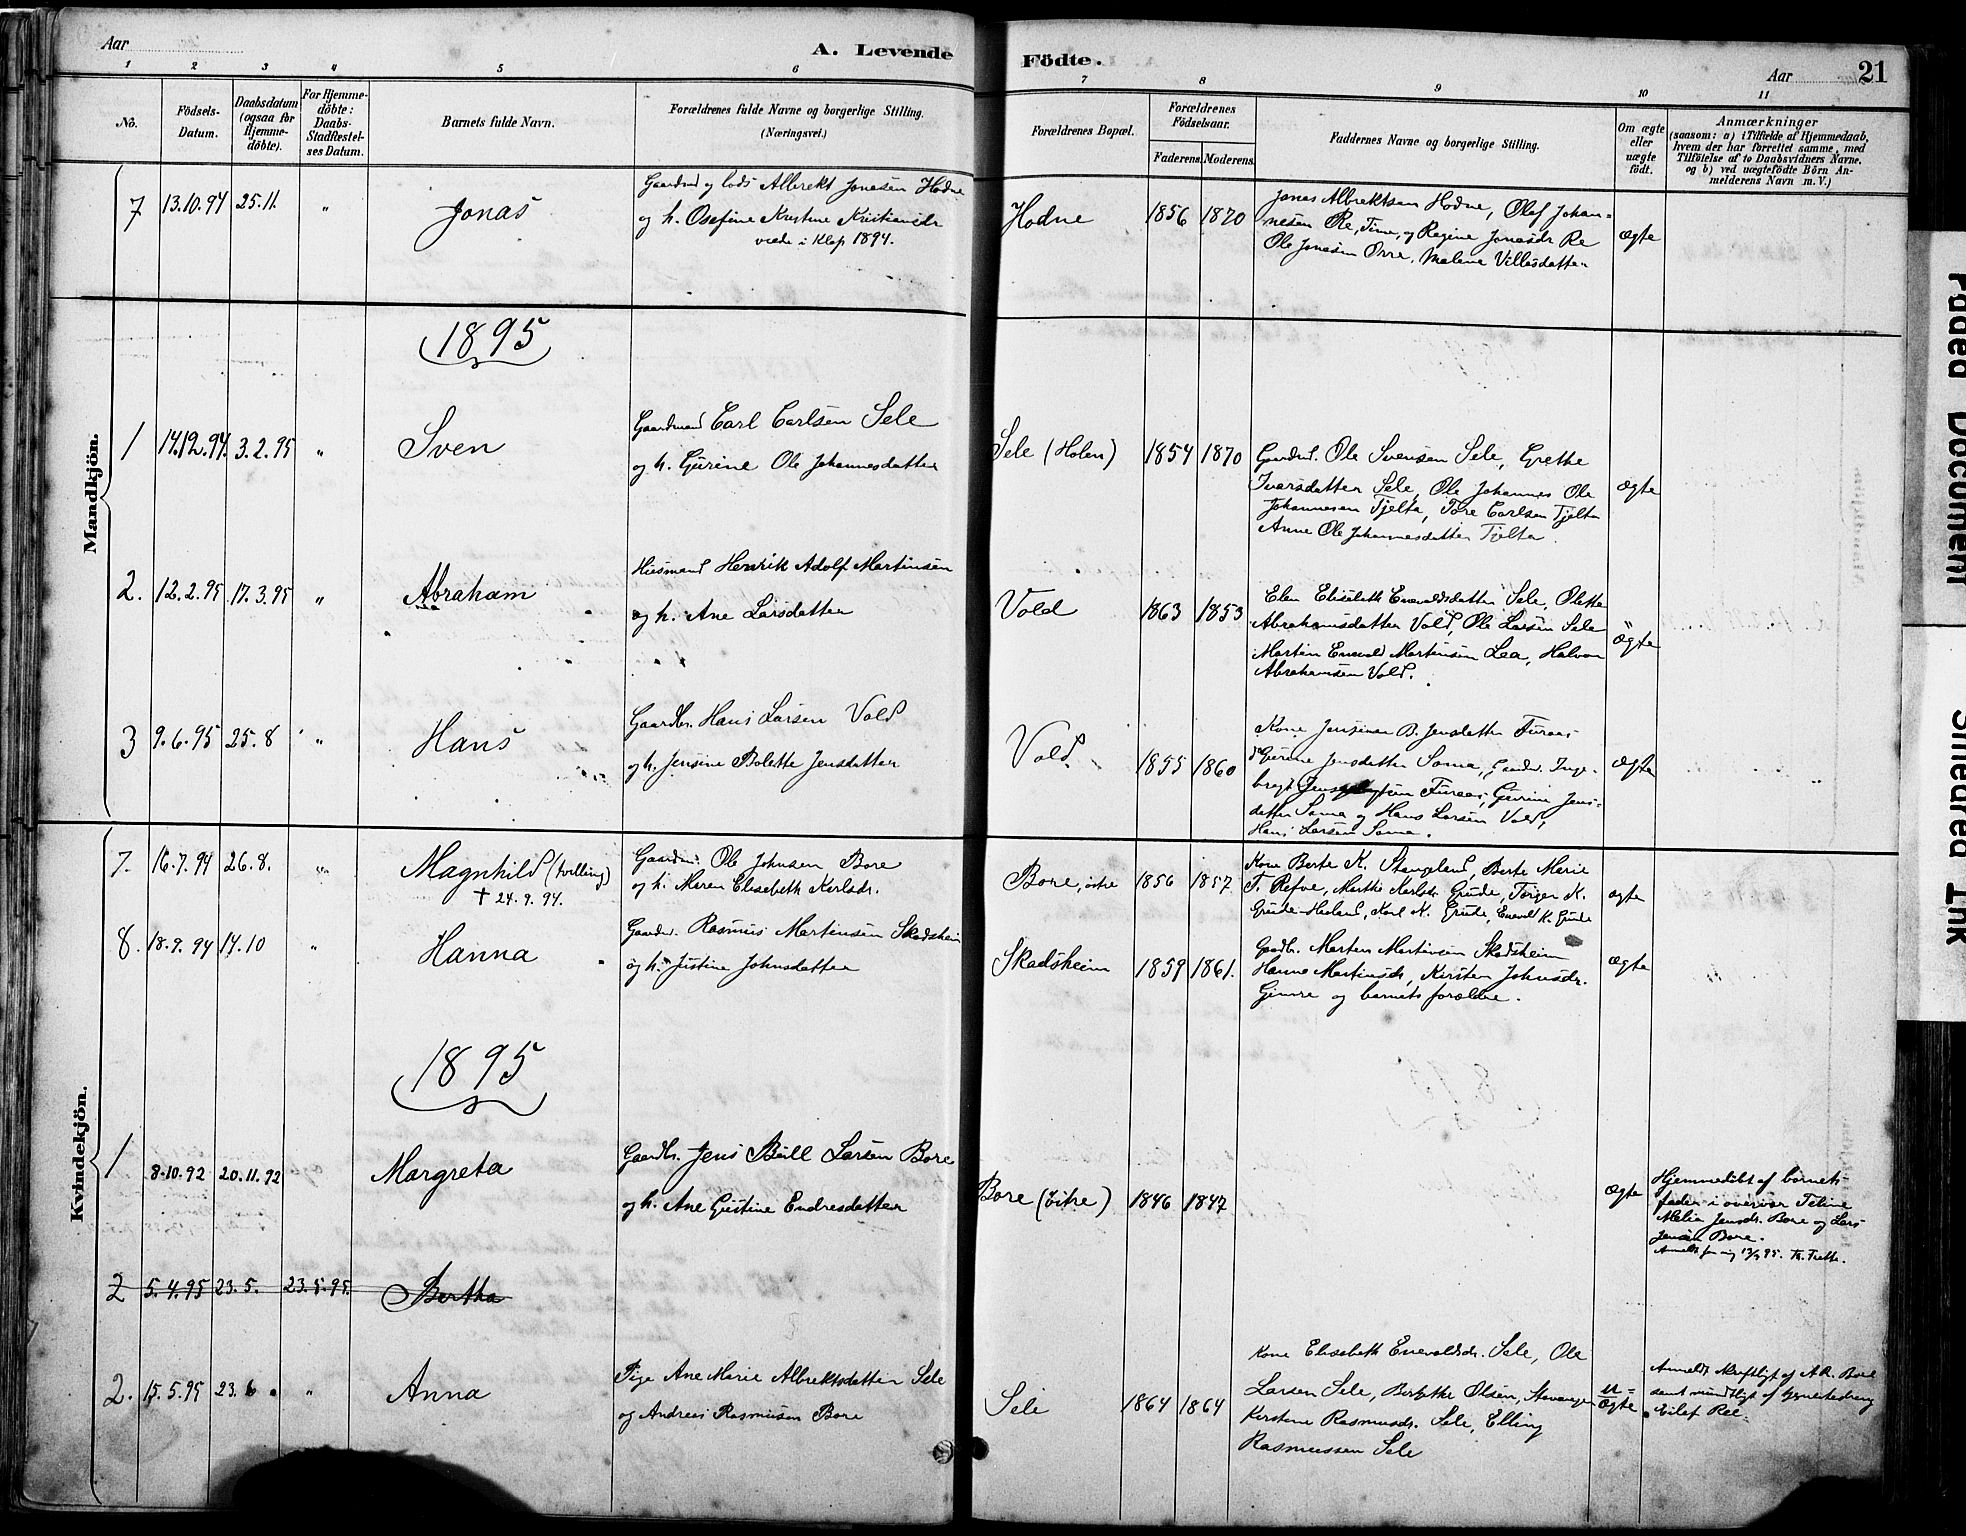 Aar
A. Levende
Födte.
Aar
21
1 2 3 4 5 6 7 8 9 10 11
No.
Födsels-
Datum.
Daabsdatum
(ogsaa for
Hjemme-
döbte).
For Hjemme-
döbte:
Daabs-
Stadfæstel-
ses Datum.
Barnets fulde Navn.
Forældrenes fulde Navne og borgerlige Stilling.
(Næringsvei.)
Forældrenes Bopæl.
Forældrenes
Födselsaar.
Faderens. Moderens.
Faddernes Navne og borgerlige Stilling.
Om ægte
eller
uægte
födt.
Anmærkninger
(saasom: a) i Tilfælde af Hjemmedaab,
hvem der har forrettet samme, med
Tilföielse af to Daabsvidners Navne.
og b) ved uægtefödte Börn An-
melderens Navn m. V.)
Mandkjön.
7 13.10.94 25.11. " Jonas
Gaardmd og lods Albrekt Jonasen Hodne
og h. Osefine Kristine Kristiansdr
viede i Klep 1894.
Hodne 1856 1870
Jonas Albrektsen Hodne, Olaf Johan-
nesen Re, Time, og Regine Jonasdr Re
Ole Jonasen Orre, Malene Villesdatter
ægte
1895
1 14.12.94. 3.2.95 " Sven
Gaardmand Carl Carlsen Sele
og h. Gurine Ole Johannesdatter
Sele (Holen) 1854 1870
Gaardmd. Ole Svensen Sele, Grethe
Ivarsdatter Sele, Ole Johannes Ole
Johannesen Tjelta, Tore Carlsen Tjelta
Anne Ole Johannesdatter Tjelta.
ægte
2. 12.2.95 17.3.95 " Abraham
Husmand Henrik Adolf Martinsen
og h. Ane Larsdatter
Vold 1863 1853
Elen Elisabeth Enevaldsdatter Sele, Olette
Abrahamsdatter Vold, Ole Larsen Sele
Martin Enevald Martinsen Lea, Halvor
Abrahamsen Vold.
ægte
3 9.6.95 25.8 " Hans
Gaardbr. Hans Larsen Vold
og h. Jensine Bolette Jensdatter
Vold. 1855 1860
Kone Jensine B. Jensdatter Furaas
Gurine Jensdatter Soma, Gaardbr. Inge-
bregt Furaas, Gurine Jens-
datter Soma og Hans Larsen Vold,
Hans Larsen Soma.
ægte
Kvindekjön.
7. 16.7.94 26.8. " Magnhild (tvilling)
† 24.9.94.
Gaardm. Ole Johnsen Bore
og h. Maren Elisabeth Karlsdr.
Bore, östre 1856 1857
Kone Berte K. Stangeland, Berte Marie
T. Refve, Marthe Karlsdr. Grude, Torger K.
Grude Heland, Karl K. Grude, Enevald K. Grude
ægte
8. 18.9.94 14.10 " Hanna
Gaardbr. Rasmus Martinsen Skadsheim
og h. Justine Johnsdatter
Skadsheim 1859 1861.
Gaardbr. Morten Martinsen Skadsheim
Hanne Martinsdr, Kirsten Johnsdr.
Gimre og barnets forældre.
ægte
1895
1 8.10.92 20.11.92 Margreta
Gaardbr. Jens Bull Larsen Bore
og h. Ane Gustine Endresdatter
Bore (östre) 1846 1847
ægte
Hjemmedöbt af barnets
fader i overvær Teline
Malia Jensdr. Bore og Lars
Jensen Bore.
2 5.4.95 23.5. 23.5.95. Bertha
2. 15.5.95 23.6 " Anna
Pige Ane Marie Albrektsdatter Sele
og Andreas Rasmusen Bore
Sele 1864 1864
Kone Elisabeth Enevaldsdr. Sele, Ole
Larsen Sele, Olsen, Stavanger
Kirstine Rasmusdr. Sele, Elling
Rasmussen Sele
u-
ægte
Anmeldt skriftligt af A. R. Bore
samt mundtligt af
Eilef Ree.
Faded Document
Smeared Ink